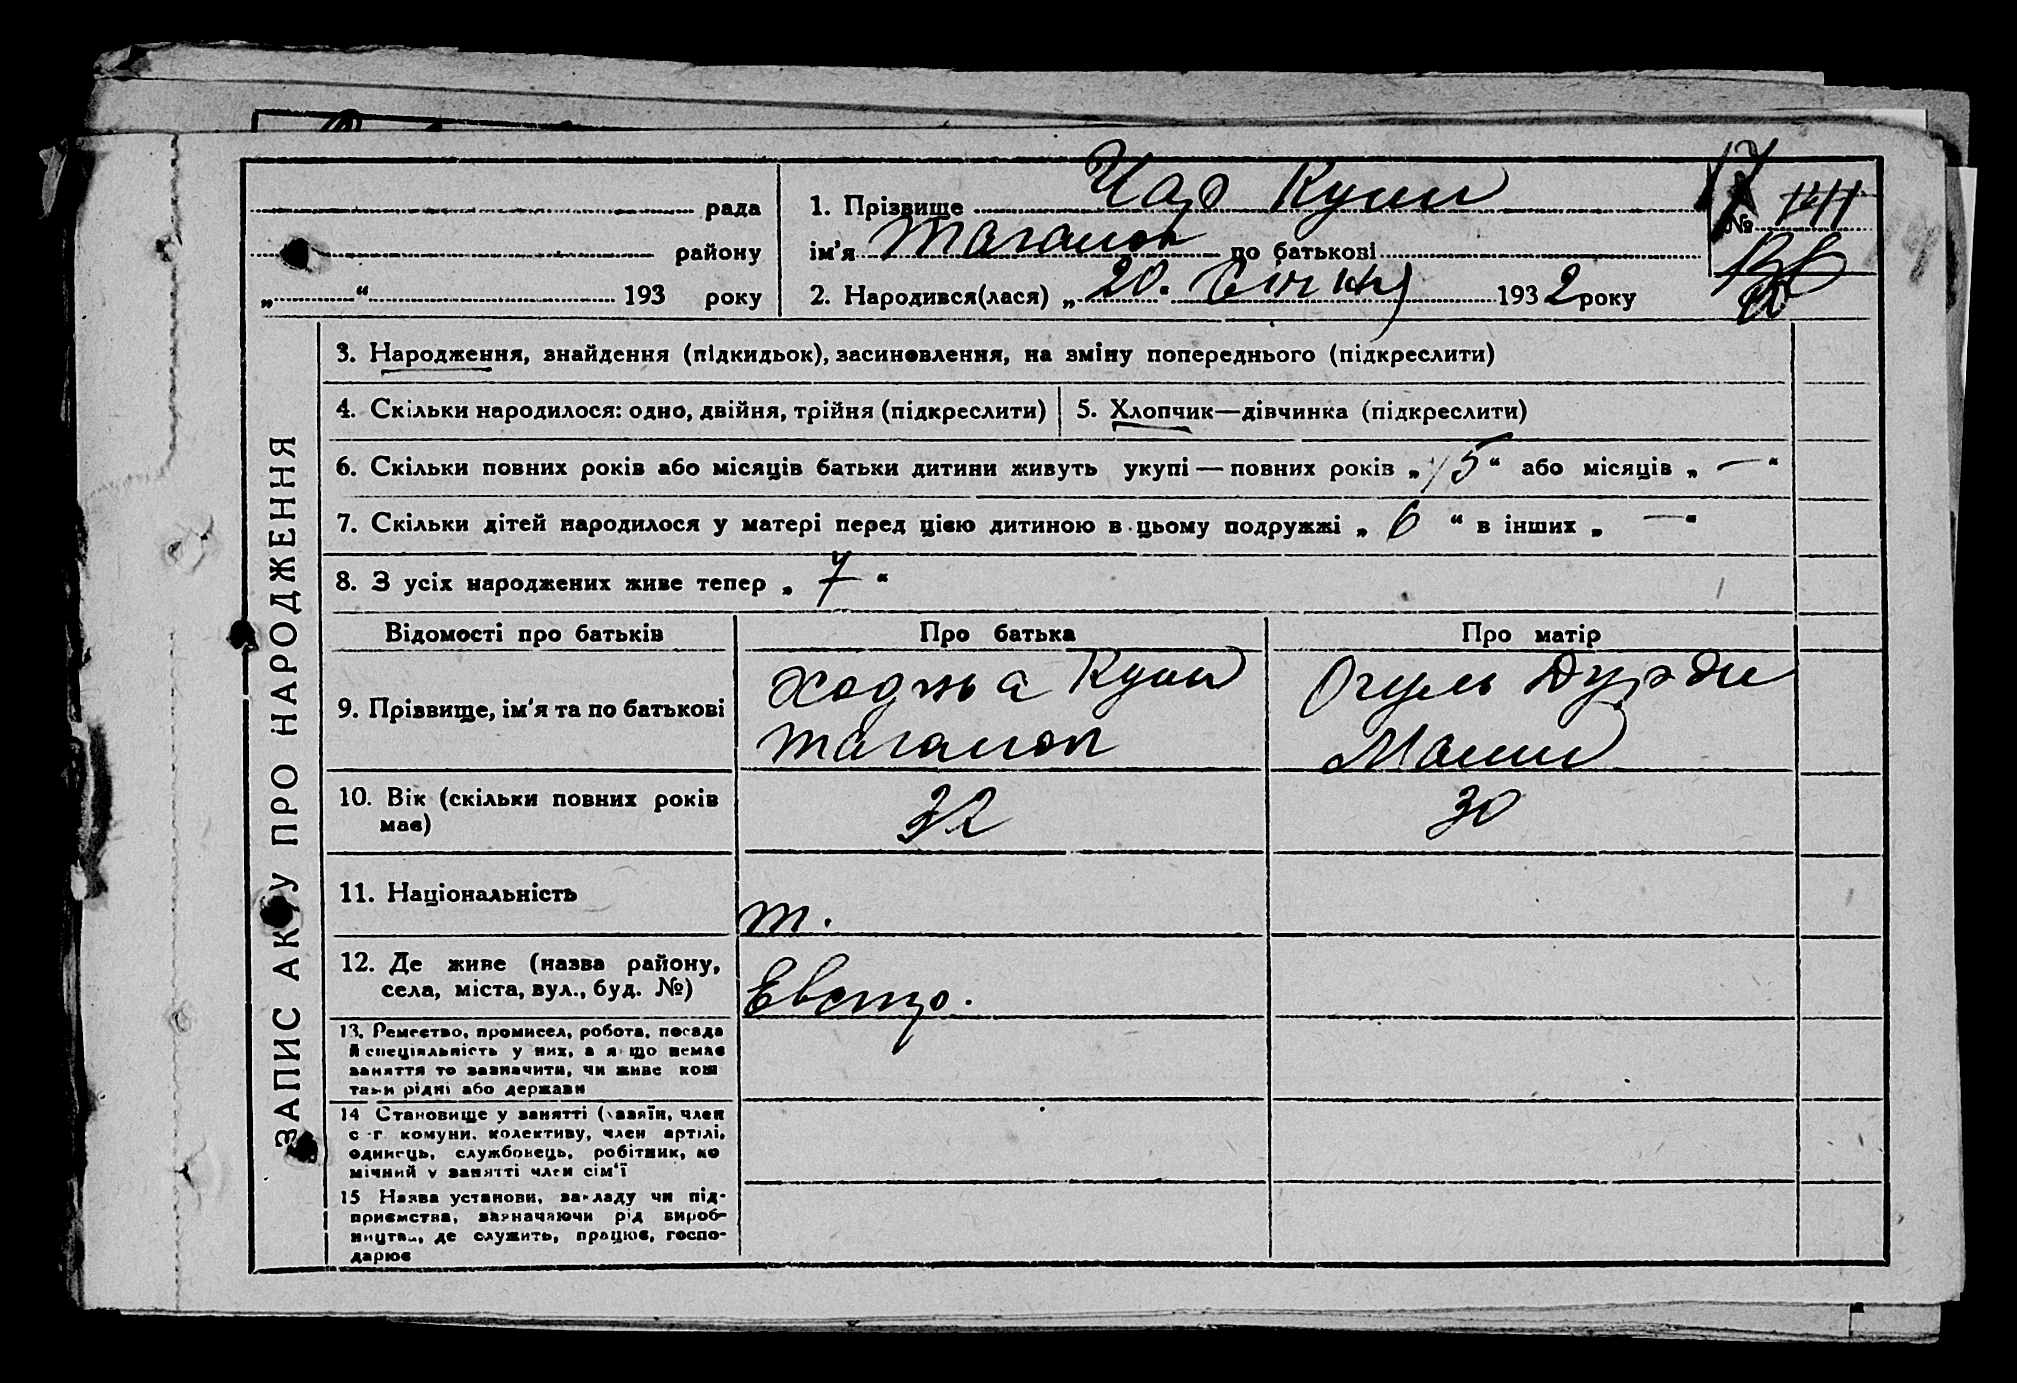 рада
району
„ “ 193 року
1. Прізвище Чар Кули
ім'я Таганоп по батькові
2. Народився(лася) „ 20. Січня 1932 року
17
№ 141
ЗАПИС АКУ ПРО НАРОДЖЕННЯ
3. Народження, знайдення (підкидьок), засиновлення, на зміну попереднього (підкреслити)
4. Скільки народилося: одно, двійня, трійня (підкреслити)
5. Хлопчик—дівчинка (підкреслити)
6. Скільки повних років або місяців батьки дитини живуть укупі — повних років „ 15 “ або місяців „ — “
7. Скільки дітей народилося у матері перед цією дитиною в цьому подружжі „ 6 “ в інших „ — “
8. З усіх народжених живе тепер „ 7 “
Відомості про батьків
Про батька
Про матір
9. Прізвище, ім'я та по батькові
Ходжа Кули
Таганоп
Огуль Дурды
Маши
10. Вік (скільки повних років має)
32
30
11. Національність
т.
12. Де живе (назва району,
села, міста, вул., буд. №)
Евстр.
13. Ремество, промисел, робота, посада
й спеціяльність у них, а якщо немає
заняття то зазначити, чи живе кош
тами рідні або держави
14 Становище у занятті (хазяїн, член
с-г. комуни, колективу, член артілі,
одинець, службовець, робітник, по
мічний у занятті член сім'ї
15 Назва установи, закладу чи під-
приємства, зазначаючи рід вироб-
ництва, де служить, працює, госпо-
дарює